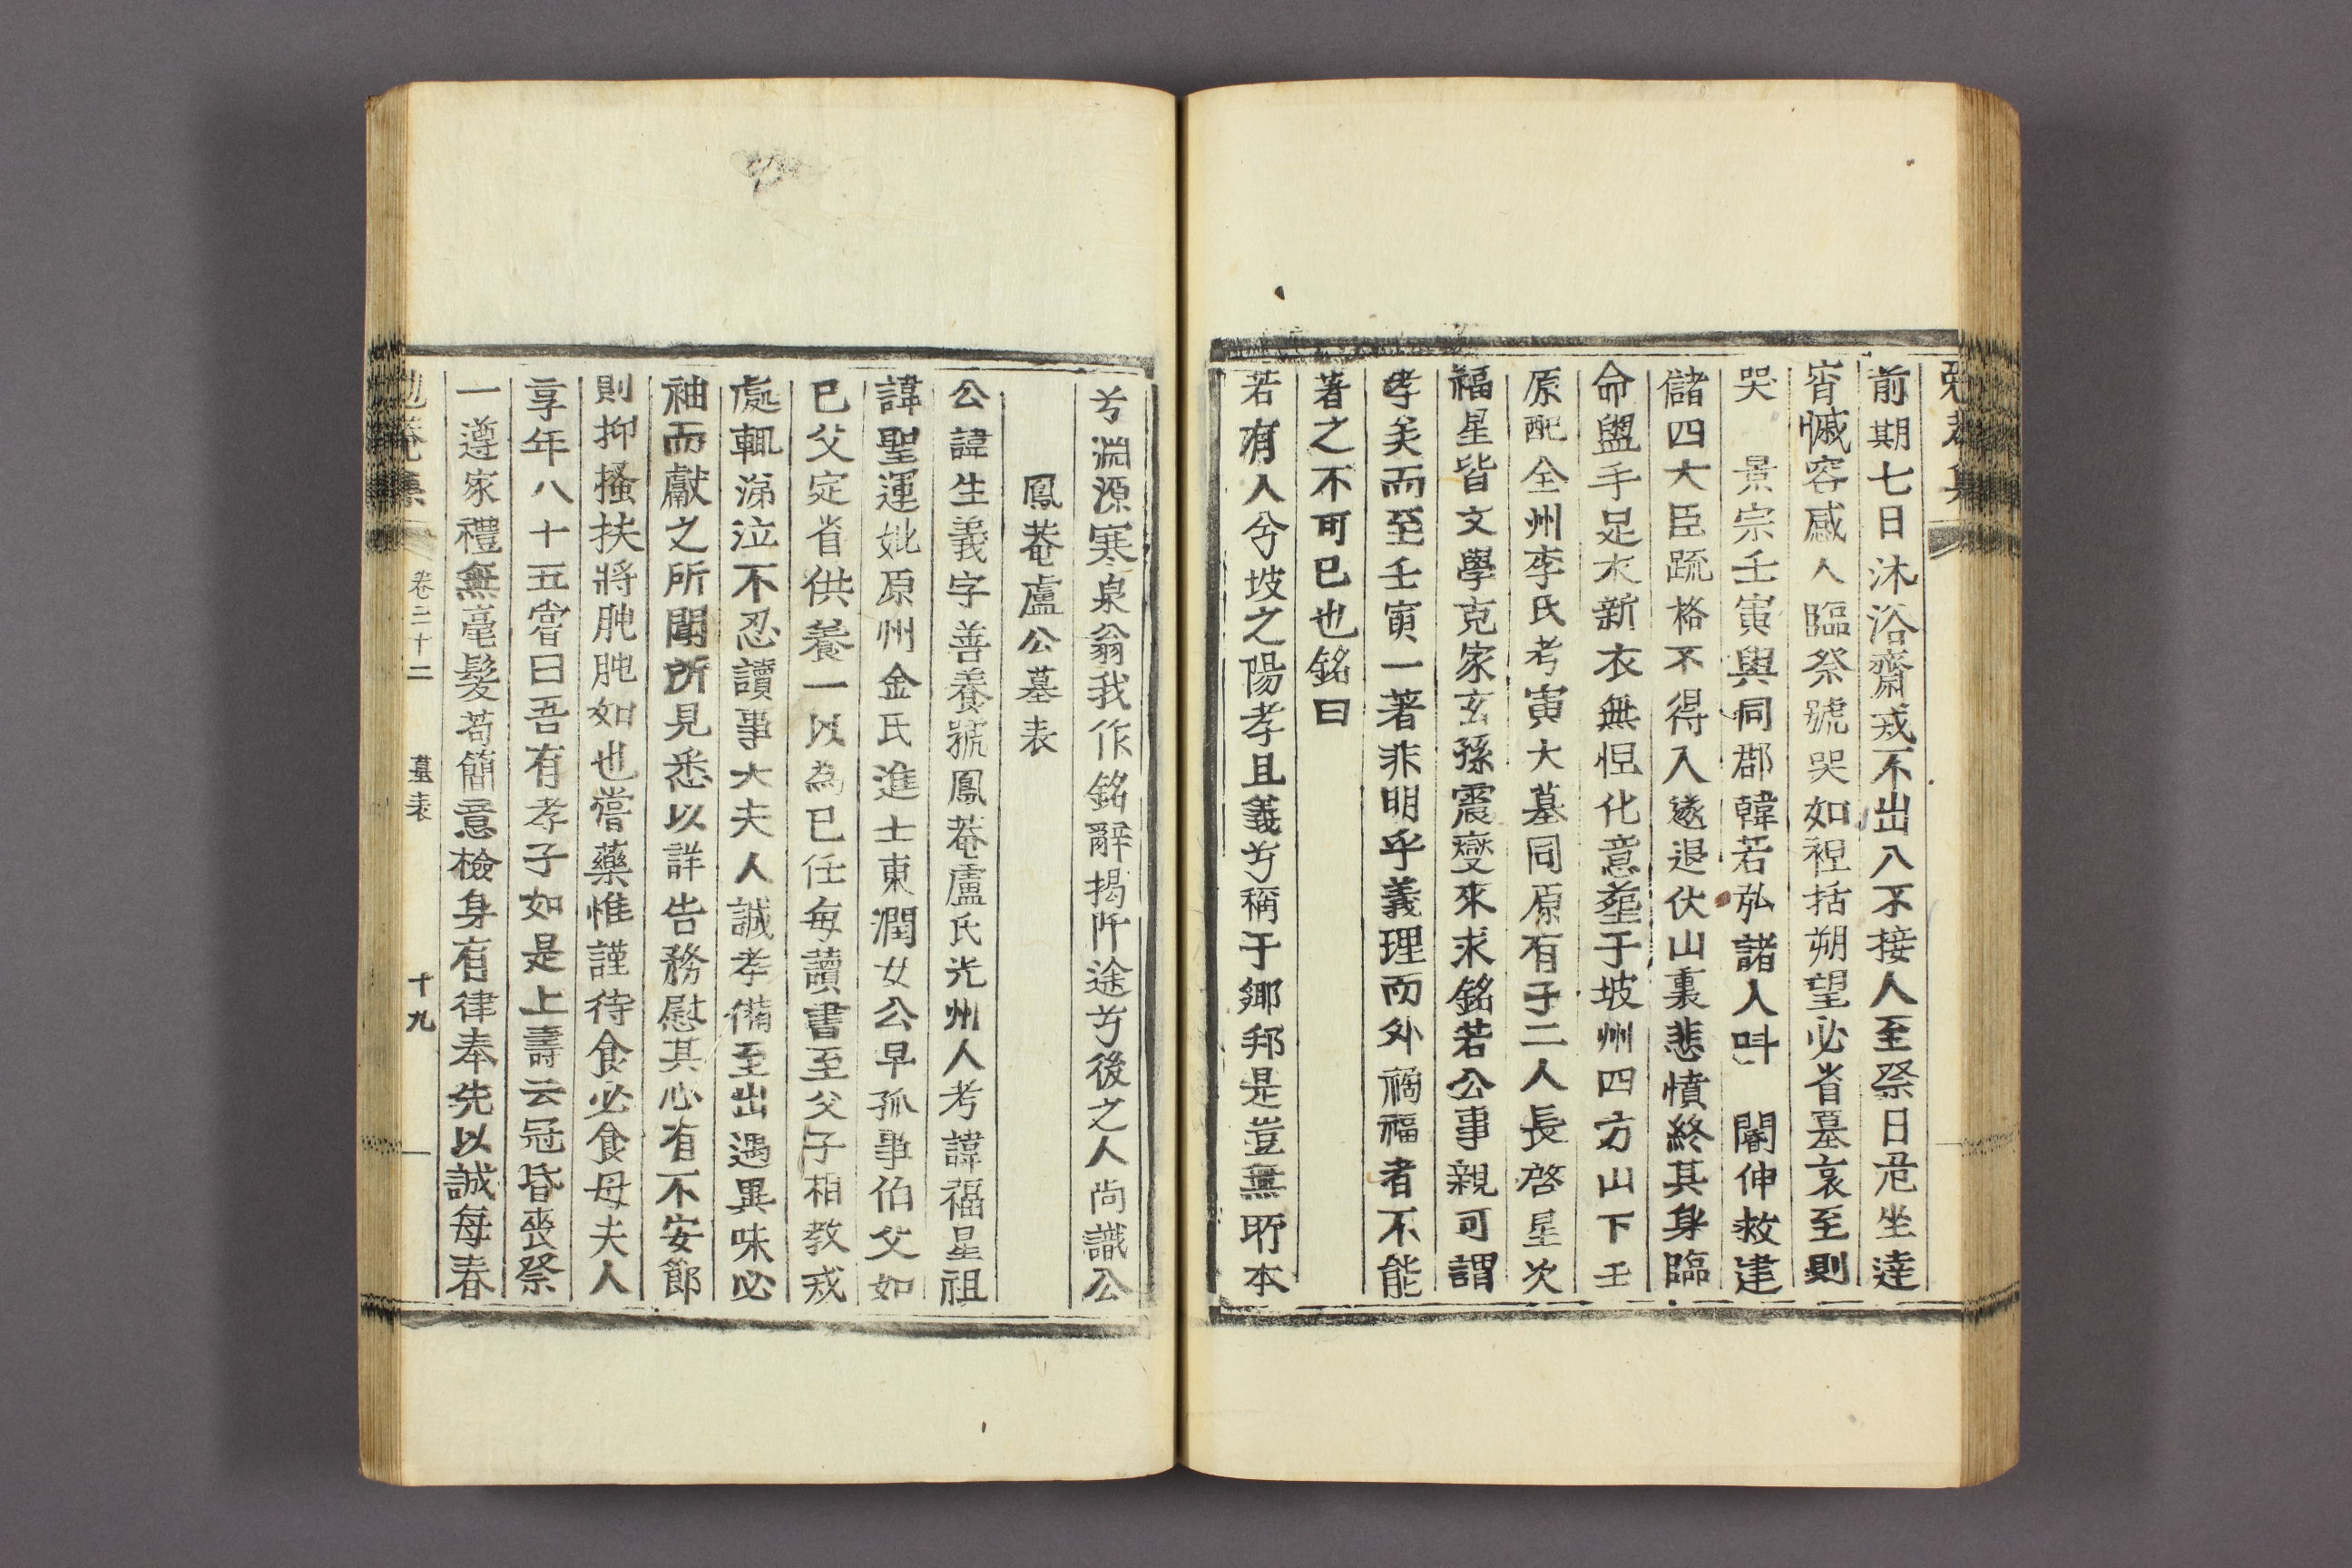 前期七日沐浴齋戒不出入不接人至祭日危坐達
宵慽容慼人臨祭號哭如袒括朔望必省墓哀至則
哭　景宗壬寅與同郡韓若弘諸人叫　閽伸救建
儲四大臣䟽格不得入遂退伏山裏悲憤終其身臨
命盥手足衣新衣無怛化意塟于坡州四方山下壬
原配全州李氏考寅大墓同原有子二人長啓星次
福星皆文學克家玄孫震燮來求銘若公事親可謂
孝矣而至壬寅一著非明乎義理而外禍福者不能
著之不可已也銘曰
若有人兮坡之陽孝且義兮稱于鄕邦是豈無所本
兮淵源寒泉翁我作銘辭揭阡途兮後之人尙識公
鳳菴盧公墓表
公諱生義字善養號鳳菴盧氏光州人考諱福星祖
諱聖運妣原州金氏進士東潤女公早孤事伯父如
已父定省供養一以為已任每讀書至父子相敎戒
處輒涕泣不忍讀事大夫人誠孝備至出遇異味必
袖而獻之所聞所見悉以詳告務慰其心有不安節
則抑搔扶將肫肫如也嘗藥惟謹待食必食母夫人
享年八十五嘗曰吾有孝子如是上壽云冠昏喪祭
一遵家禮無毫髮苟簡意檢身有律奉先以誠每春
勉菴集 卷三十二 墓表 十九